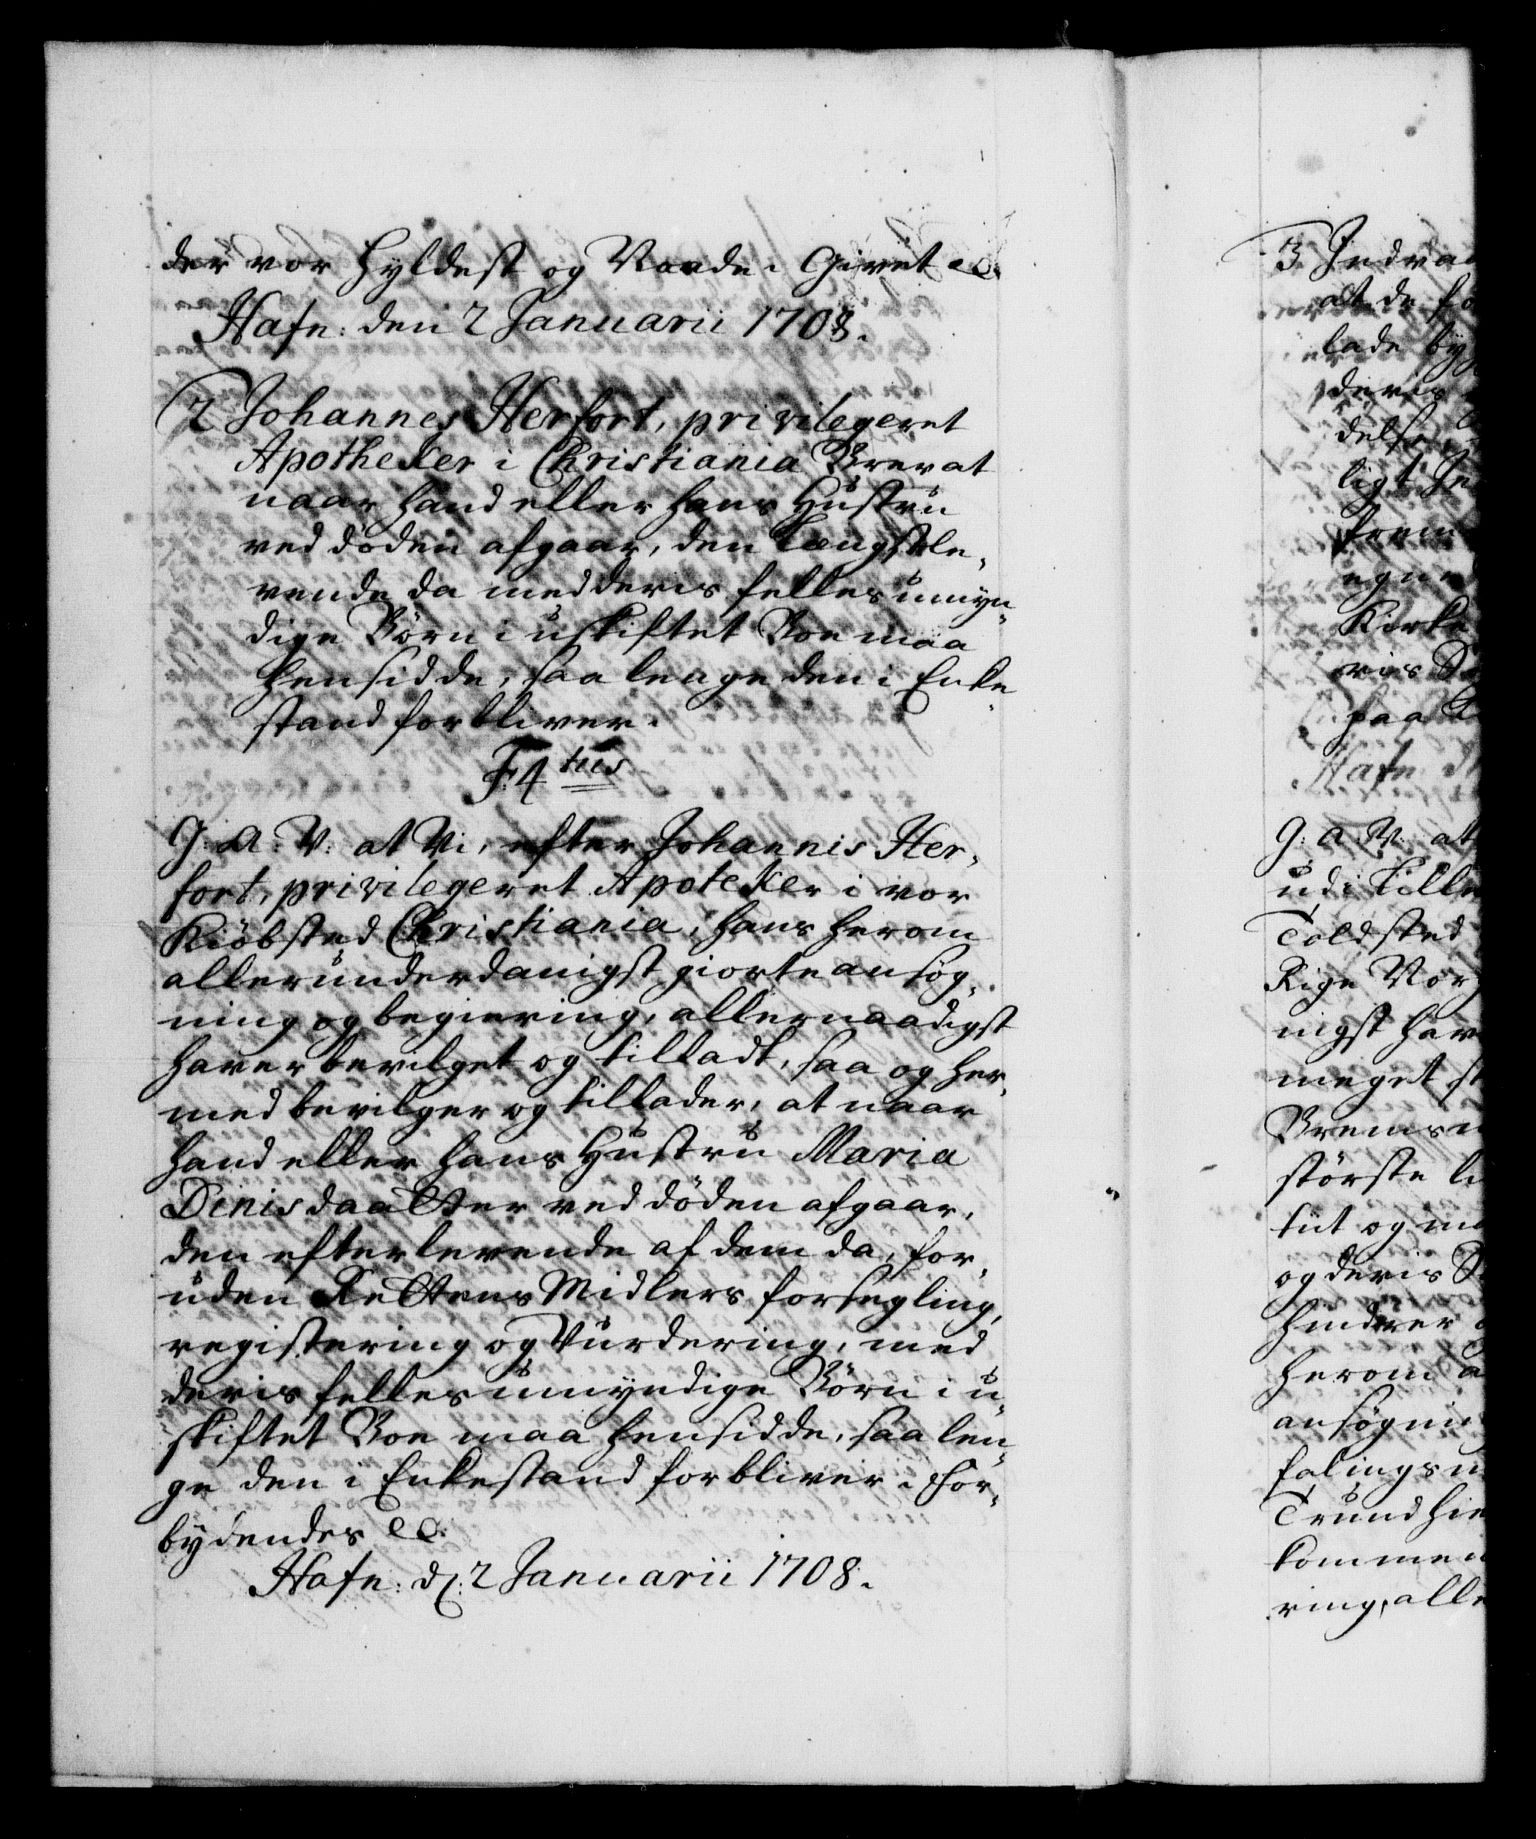 der vor Hyldest og Naade. Givet ec.
Hafn: den 2 Januarii 1708.
2 Johannes Herfort, privilegeret
Apotheker i Christiania Brev at
naar hand eller hans Hustru
ved döden afgaar, den Længstle,
vende da med deris felles umyn,
dige Börn i uskiftet Boe maa
hensidde, saa lenge den i Enke,
stand forbliver.
F: 4tus
G: A: V: at Vi, efter Johannis Her,
fort, privilegeret Apoteker i vor
Kiöbsted Christiania, hans herom
allerunderdanigst giorte ansög,
ning og begiering, allernaadigst
haver bevilget og tilladt, saa og her,
med bevilger og tillader, at naar
hand eller hans Hustru Maria
Dinisdaatter ved döden afgaar,
den efterlevende af dem da, for,
uden Rettens Midlers forsegling,
registering og Vurdering, med
deris felles umyndige Börn i u,
skiftet Boe maa hensidde, saa len,
ge den i Enkestand forbliver. For,
bydendes ec.
Hafn: d: 2 Januarii 1708.
3
at de
lade
deris
Kirke
paa
Hafn:
G: A: V: at
udi
Toldsted
Rige
nigst
meget
störste
og deris
herom
ansögning
kommen
ring, alle